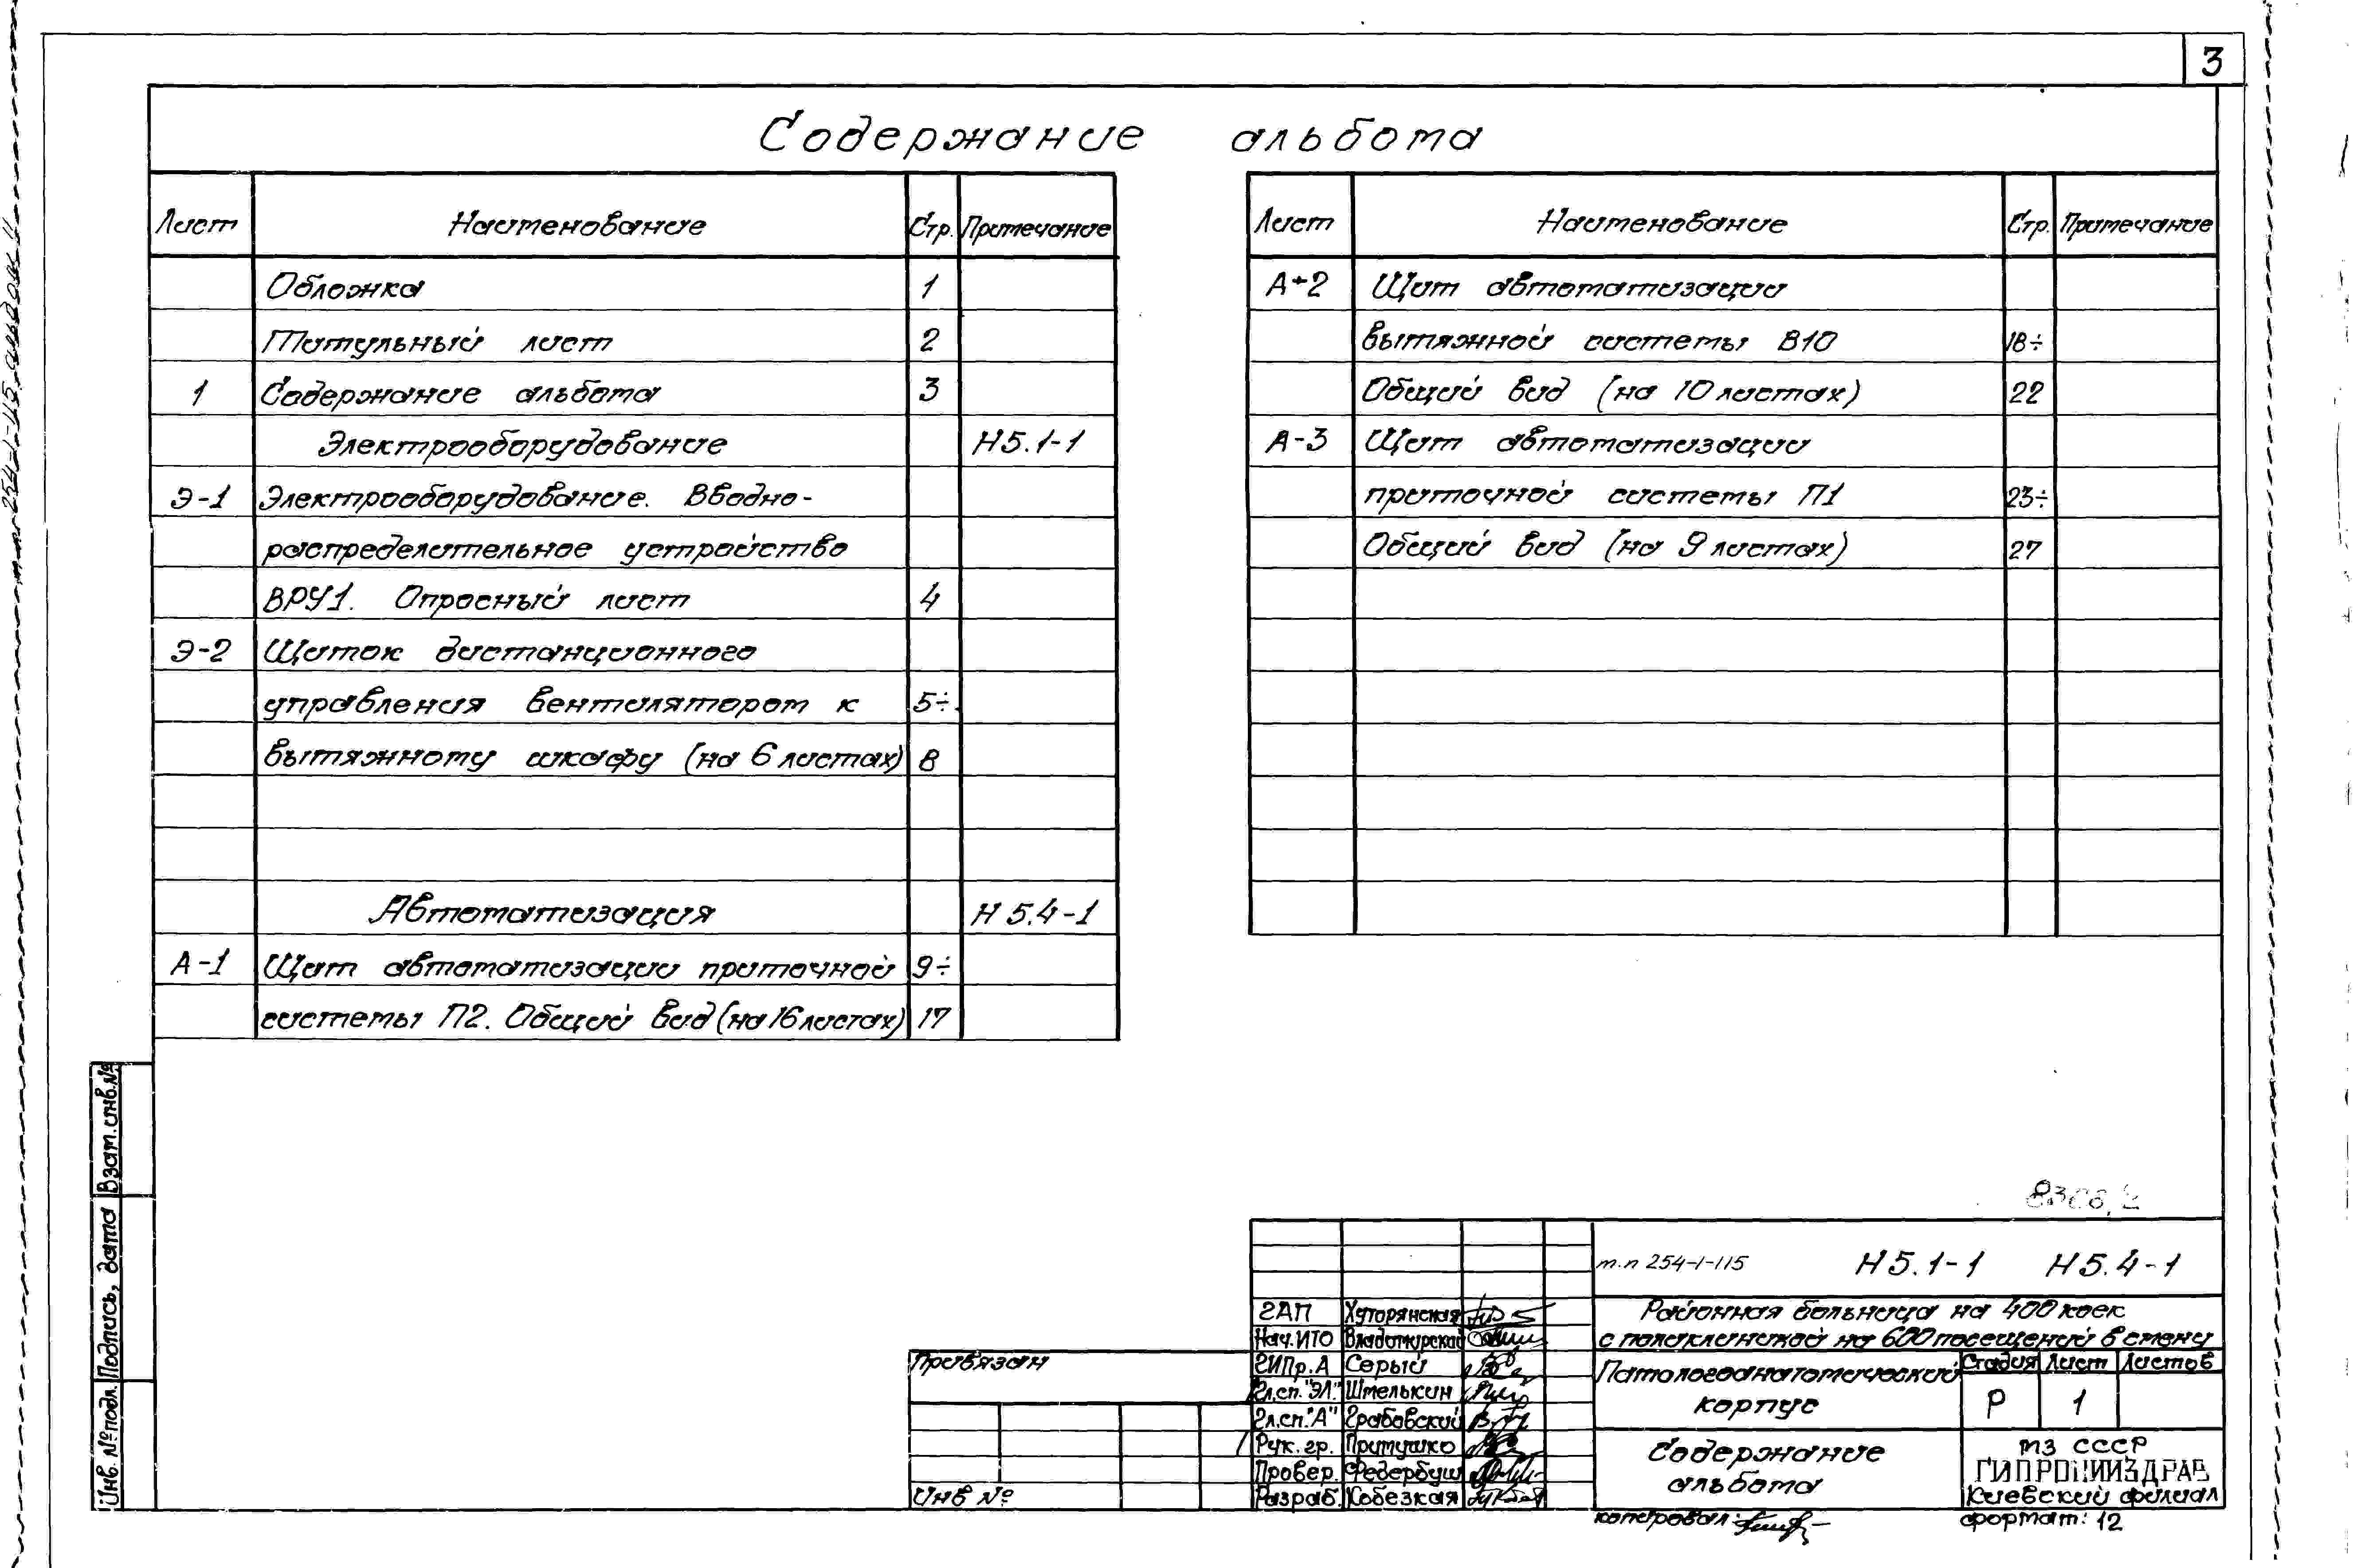 3
Содержание альбома
Лист Наименование Стр. Примечание
Обложка 1
Титульный лист 2
1 Содержание альбома 3
Электрооборудование Н5.1-1
Э-1 Электрооборудование. Вводно-
распределительное устройство
ВРУ1. Опросный лист 4
Э-2 Щиток дистанционного
управления вентилятором к 5÷
вытяжному шкафу (на 6 листах) 8
Автоматизация Н 5.4-1
А-1 Щит автоматизации приточной 9÷
системы П2. Общий вид (на 16 листах) 17
Лист Наименование Стр. Примечание
А-2 Щит автоматизации
вытяжной системы В10 18÷
Общий вид (на 10 листах) 22
А-3 Щит автоматизации
приточной системы П1 23÷
Общий вид (на 9 листах) 27
т.п 254-1-115 альбом
Взам. инв. №
Подпись, дата
Инв. № подл.
Привязан
Инв №
т.п 254-1-115 Н5.1-1 Н5.4-1
ГАП Хуторянская
Нач. ИТО Владимирский
ГИПр. А Серый
Гл.сп. "ЭЛ." Шмелькин
Гл.сп. "А" Грабовский
Рук. гр. Притушко
Провер. Федербуш
Разраб. Кобезкая
Районная больница на 400 коек
с поликлиникой на 600 посещений в смену
Патологоанатомический
корпус
Стадия Лист Листов
Р 1
Содержание
альбома
МЗ СССР
ГИПРОНИИЗДРАВ
Киевский филиал
копировал:
формат: 12